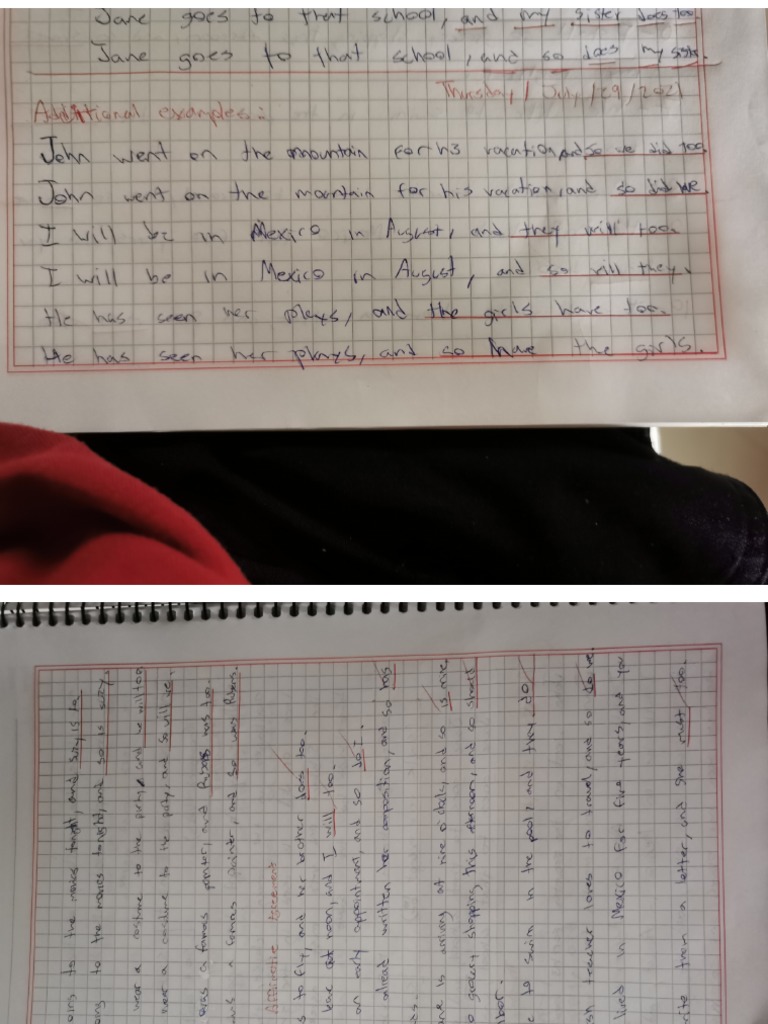 Jane goes to that school, and my sister does too.
Jane goes to that school, and so does my sister.
Thursday, / Jul, / 29 / 2021
Additional examples:
John went on the mountain for his vacation, and so we did too.
John went on the mountain for his vacation, and so did we.
I will be in Mexico in August, and they will too.
I will be in Mexico in August, and so will they.
He has seen her plays, and the girls have too.
He has seen her plays, and so have the girls.
to the movies tonight, and
to the movies tonight, and so is
wear a costume to the party, and we will too
wear a costume to the party, and so will we.
a famous painter, and Rubens was too.
a famous painter, and so was Rubens.
Affirmative Agreement
to fly, and her brother does too.
noon, and I will too.
an early appointment, and so do I.
written her composition, and so has
is arriving at nine o'clock, and so is mine
grocery shopping this afternoon, and so should
to swim in the pool, and they do
teacher loves to travel, and so do we.
lived in Mexico for five years, and you
a letter, and she must too.